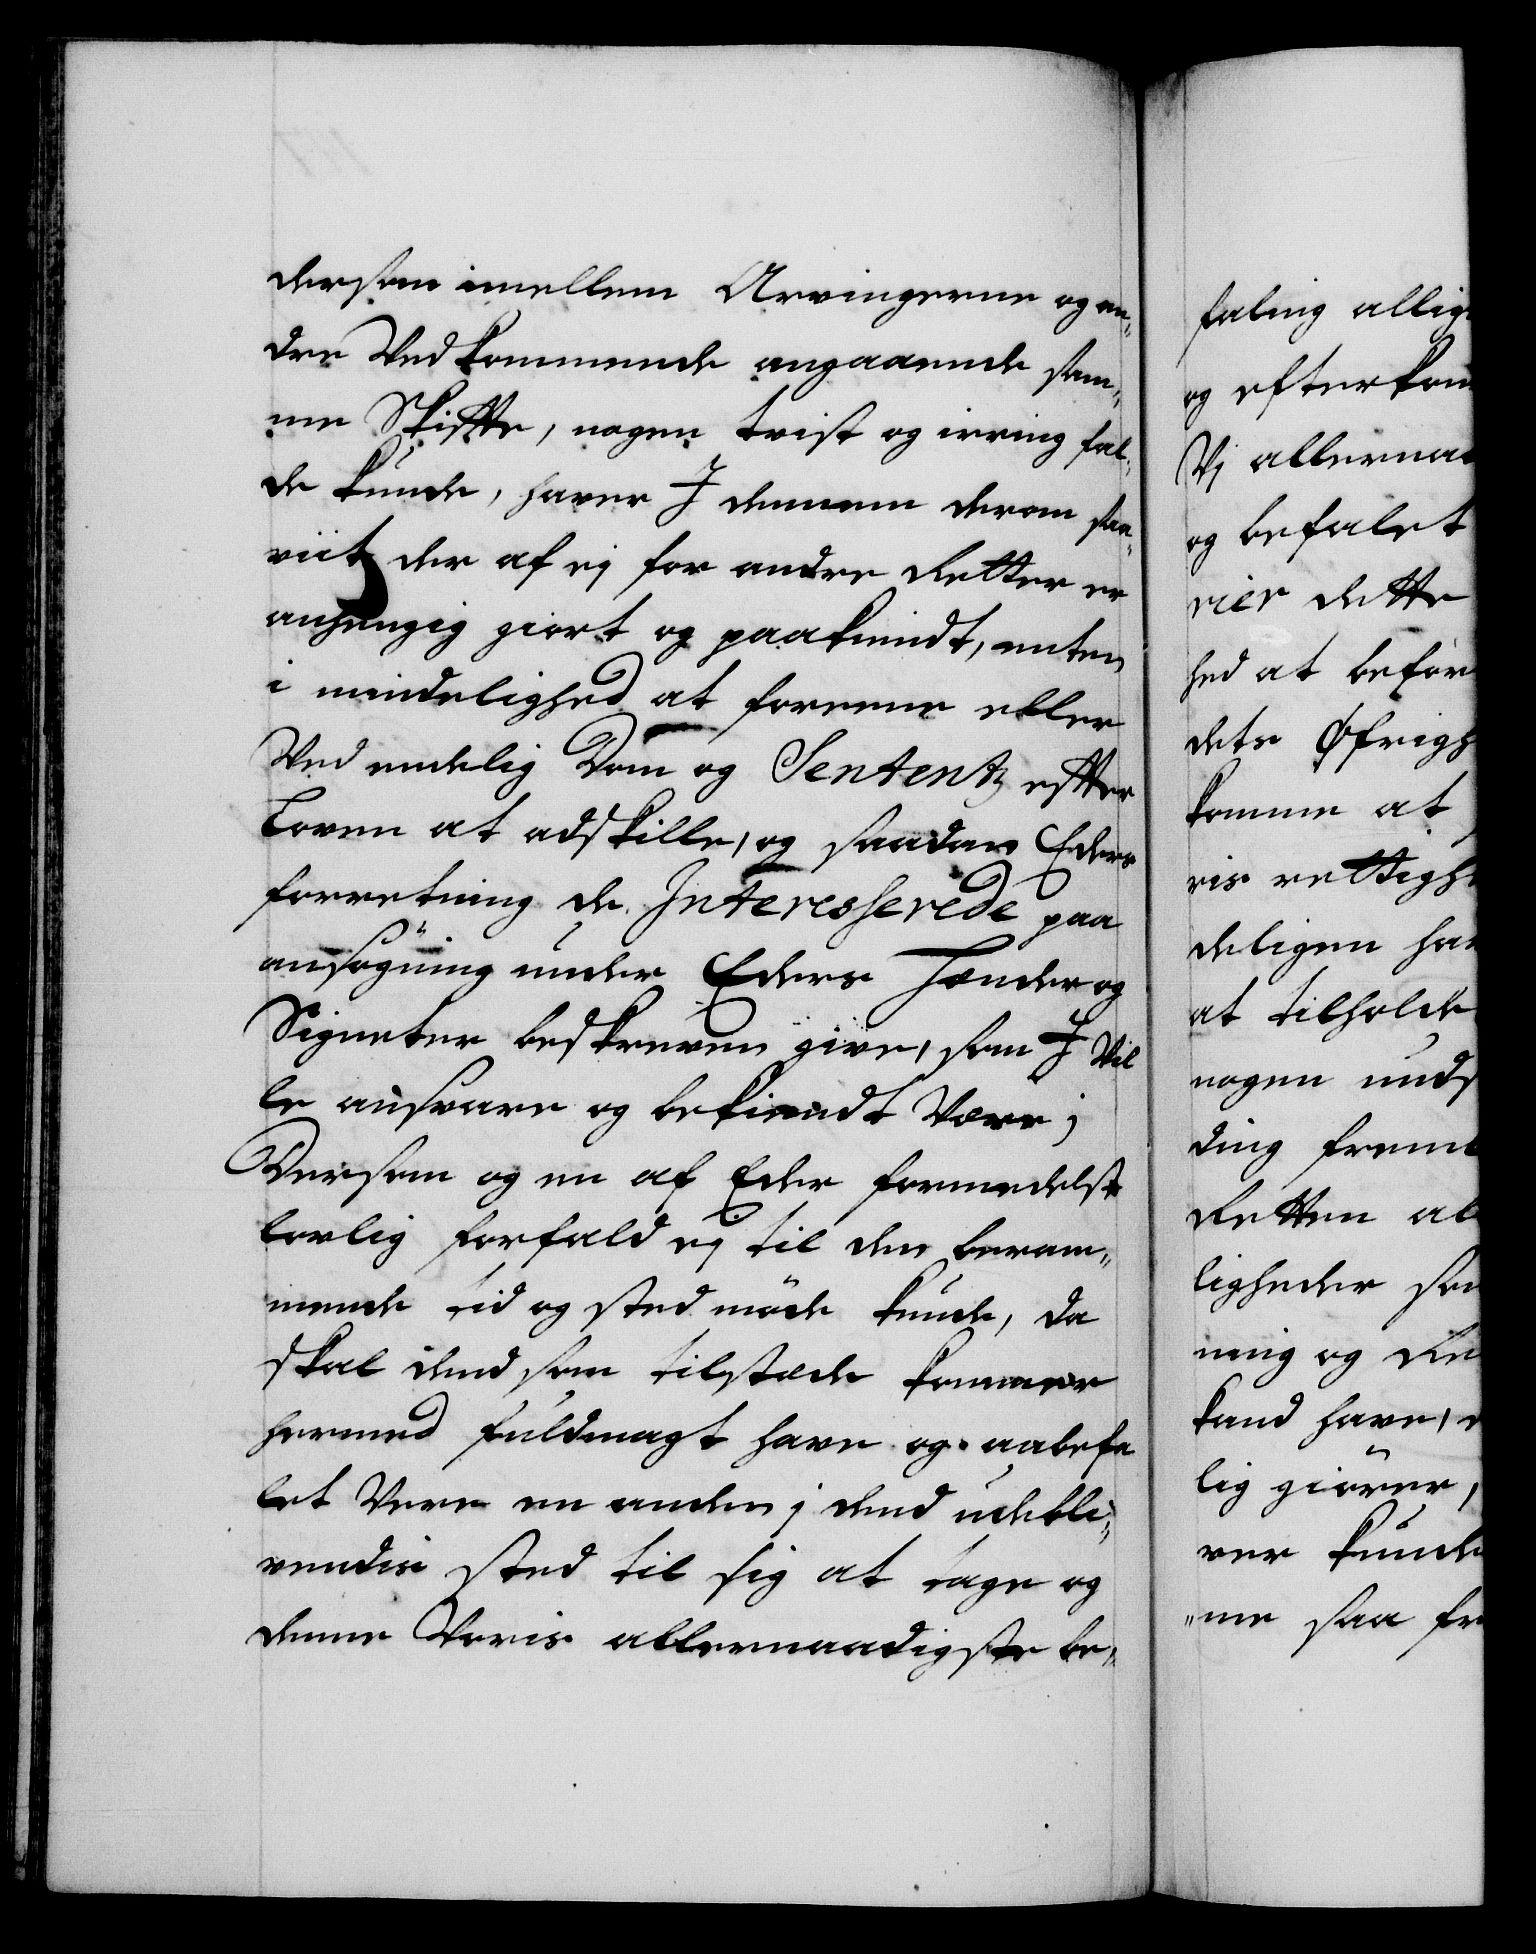 dersom imellem Arvingerne og an„
dre Vedkommende angaaende sam„
me Skiffte, nogen tvist og irring fal„
de kunde, haver I dennem derom saa„
viit der af ej for andre Retter er
anhengig giort og paakiendt, enten
i mindelighed at foreene eller
Ved endelig Dom og Sententz effter
Loven at adskille, og saadan Eders
forretning de Interesserede paa
ansøgning under Eders Hænder og
Signeter beskreven give, som I Vil
le ansvare og bekiendt Være;
Dersom og en af Eder formedelst
lovlig forfald ej til den beram„
mende tid og sted møde kunde, da
skal dend som tilstæde kommer
hermed fuldmagt have og aabefa
let Vere en anden j dend udebli„
vendis sted til sig at tage og
denne Voris allernaadigste be„
faling allig
og efterkom
Vj allernaa
og befalet
rier dette
hed at befor
dets Øfrigh
komme at
ris rettigh
deligen ha
at tilholde
nogen unds
ding frem
Retten al
ligheder so
ning og Re
kand have,
lig giører,
ver kunde
„me saa fr